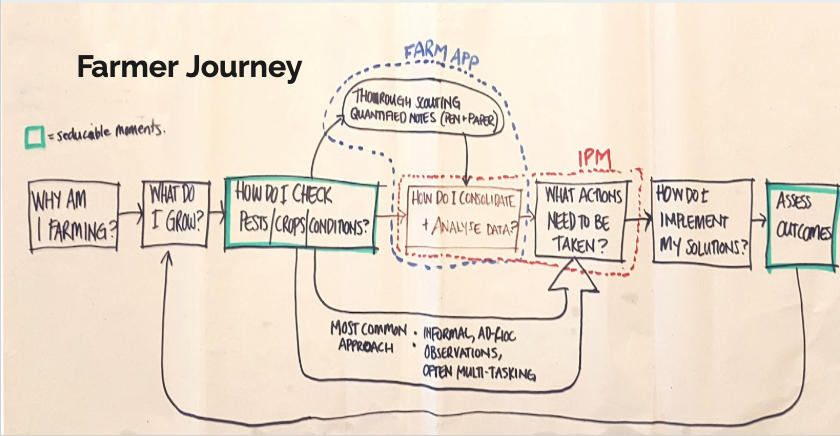 Farmer Journey
FARM APP
THOROUGH SCOUTING
QUANTIFIED NOTES (PEN + PAPER)
= seducable moments.
IPM
WHY AM
I FARMING?
WHAT DO
I GROW?
HOW DO I CHECK
PESTS/CROPS/CONDITIONS?
HOW DO I CONSOLIDATE
+ ANALYSE DATA?
WHAT ACTIONS
NEED TO BE
TAKEN?
HOW DO I
IMPLEMENT
MY SOLUTIONS?
ASSESS
OUTCOMES
MOST COMMON
APPROACH
• INFORMAL, AD-HOC
• OBSERVATIONS,
OFTEN MULTI-TASKING